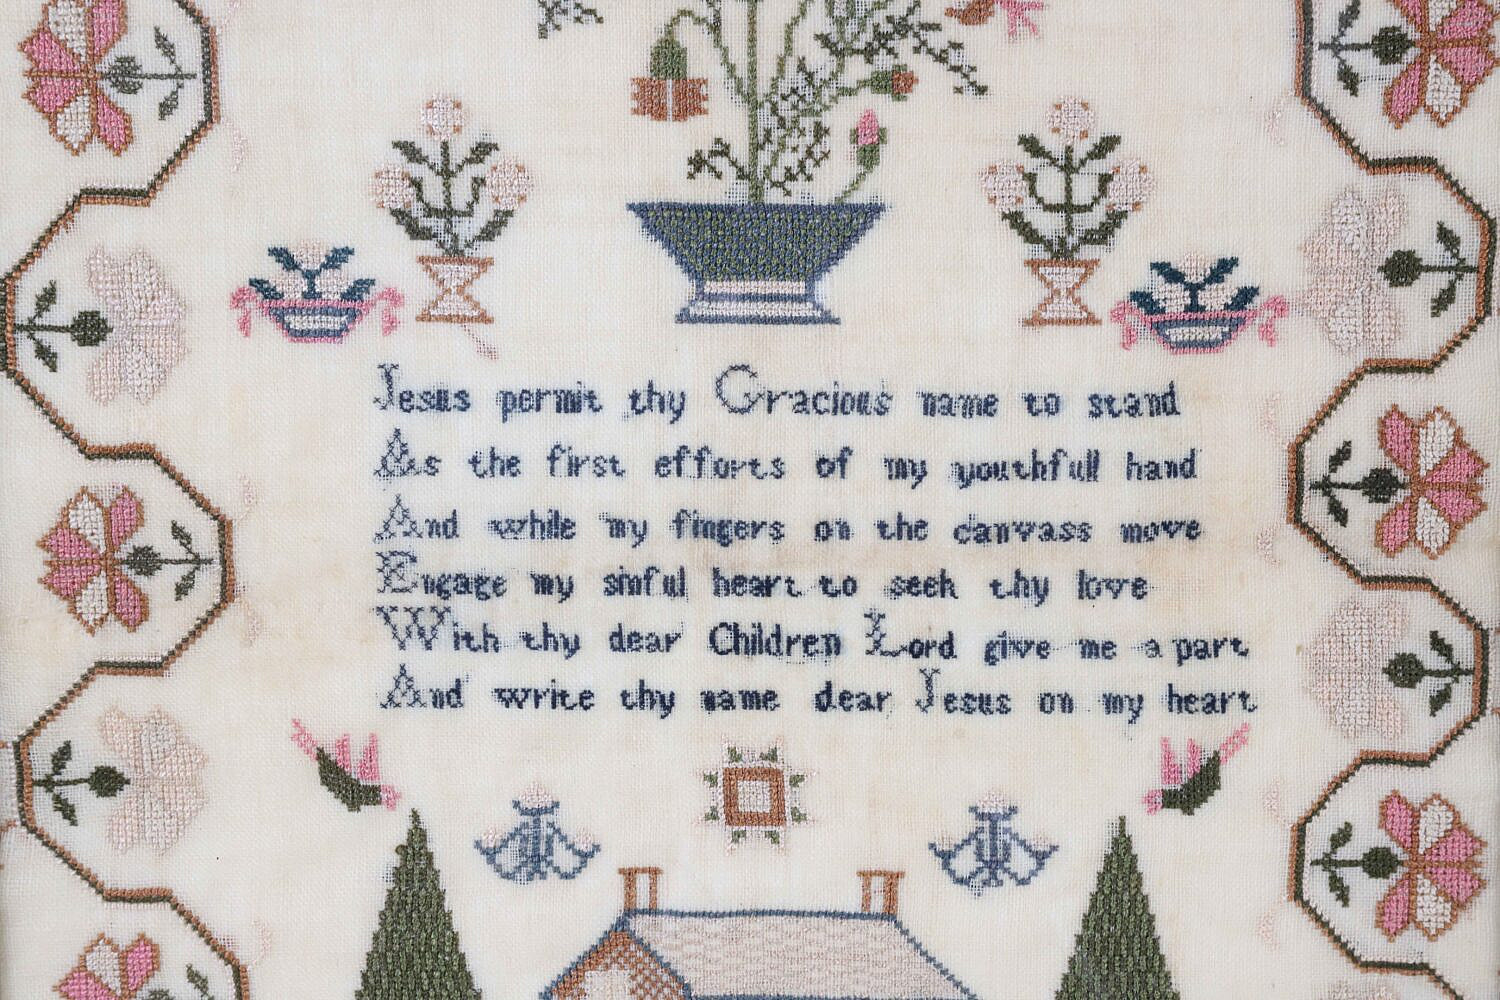 Jesus permit thy Gracious name to stand
As the first efforts of my youthfull hand
And while my fingers on the canvass move
Engage my sinful heart to seek thy love
With thy dear Children Lord give me a part
And write thy name dear Jesus on my heart